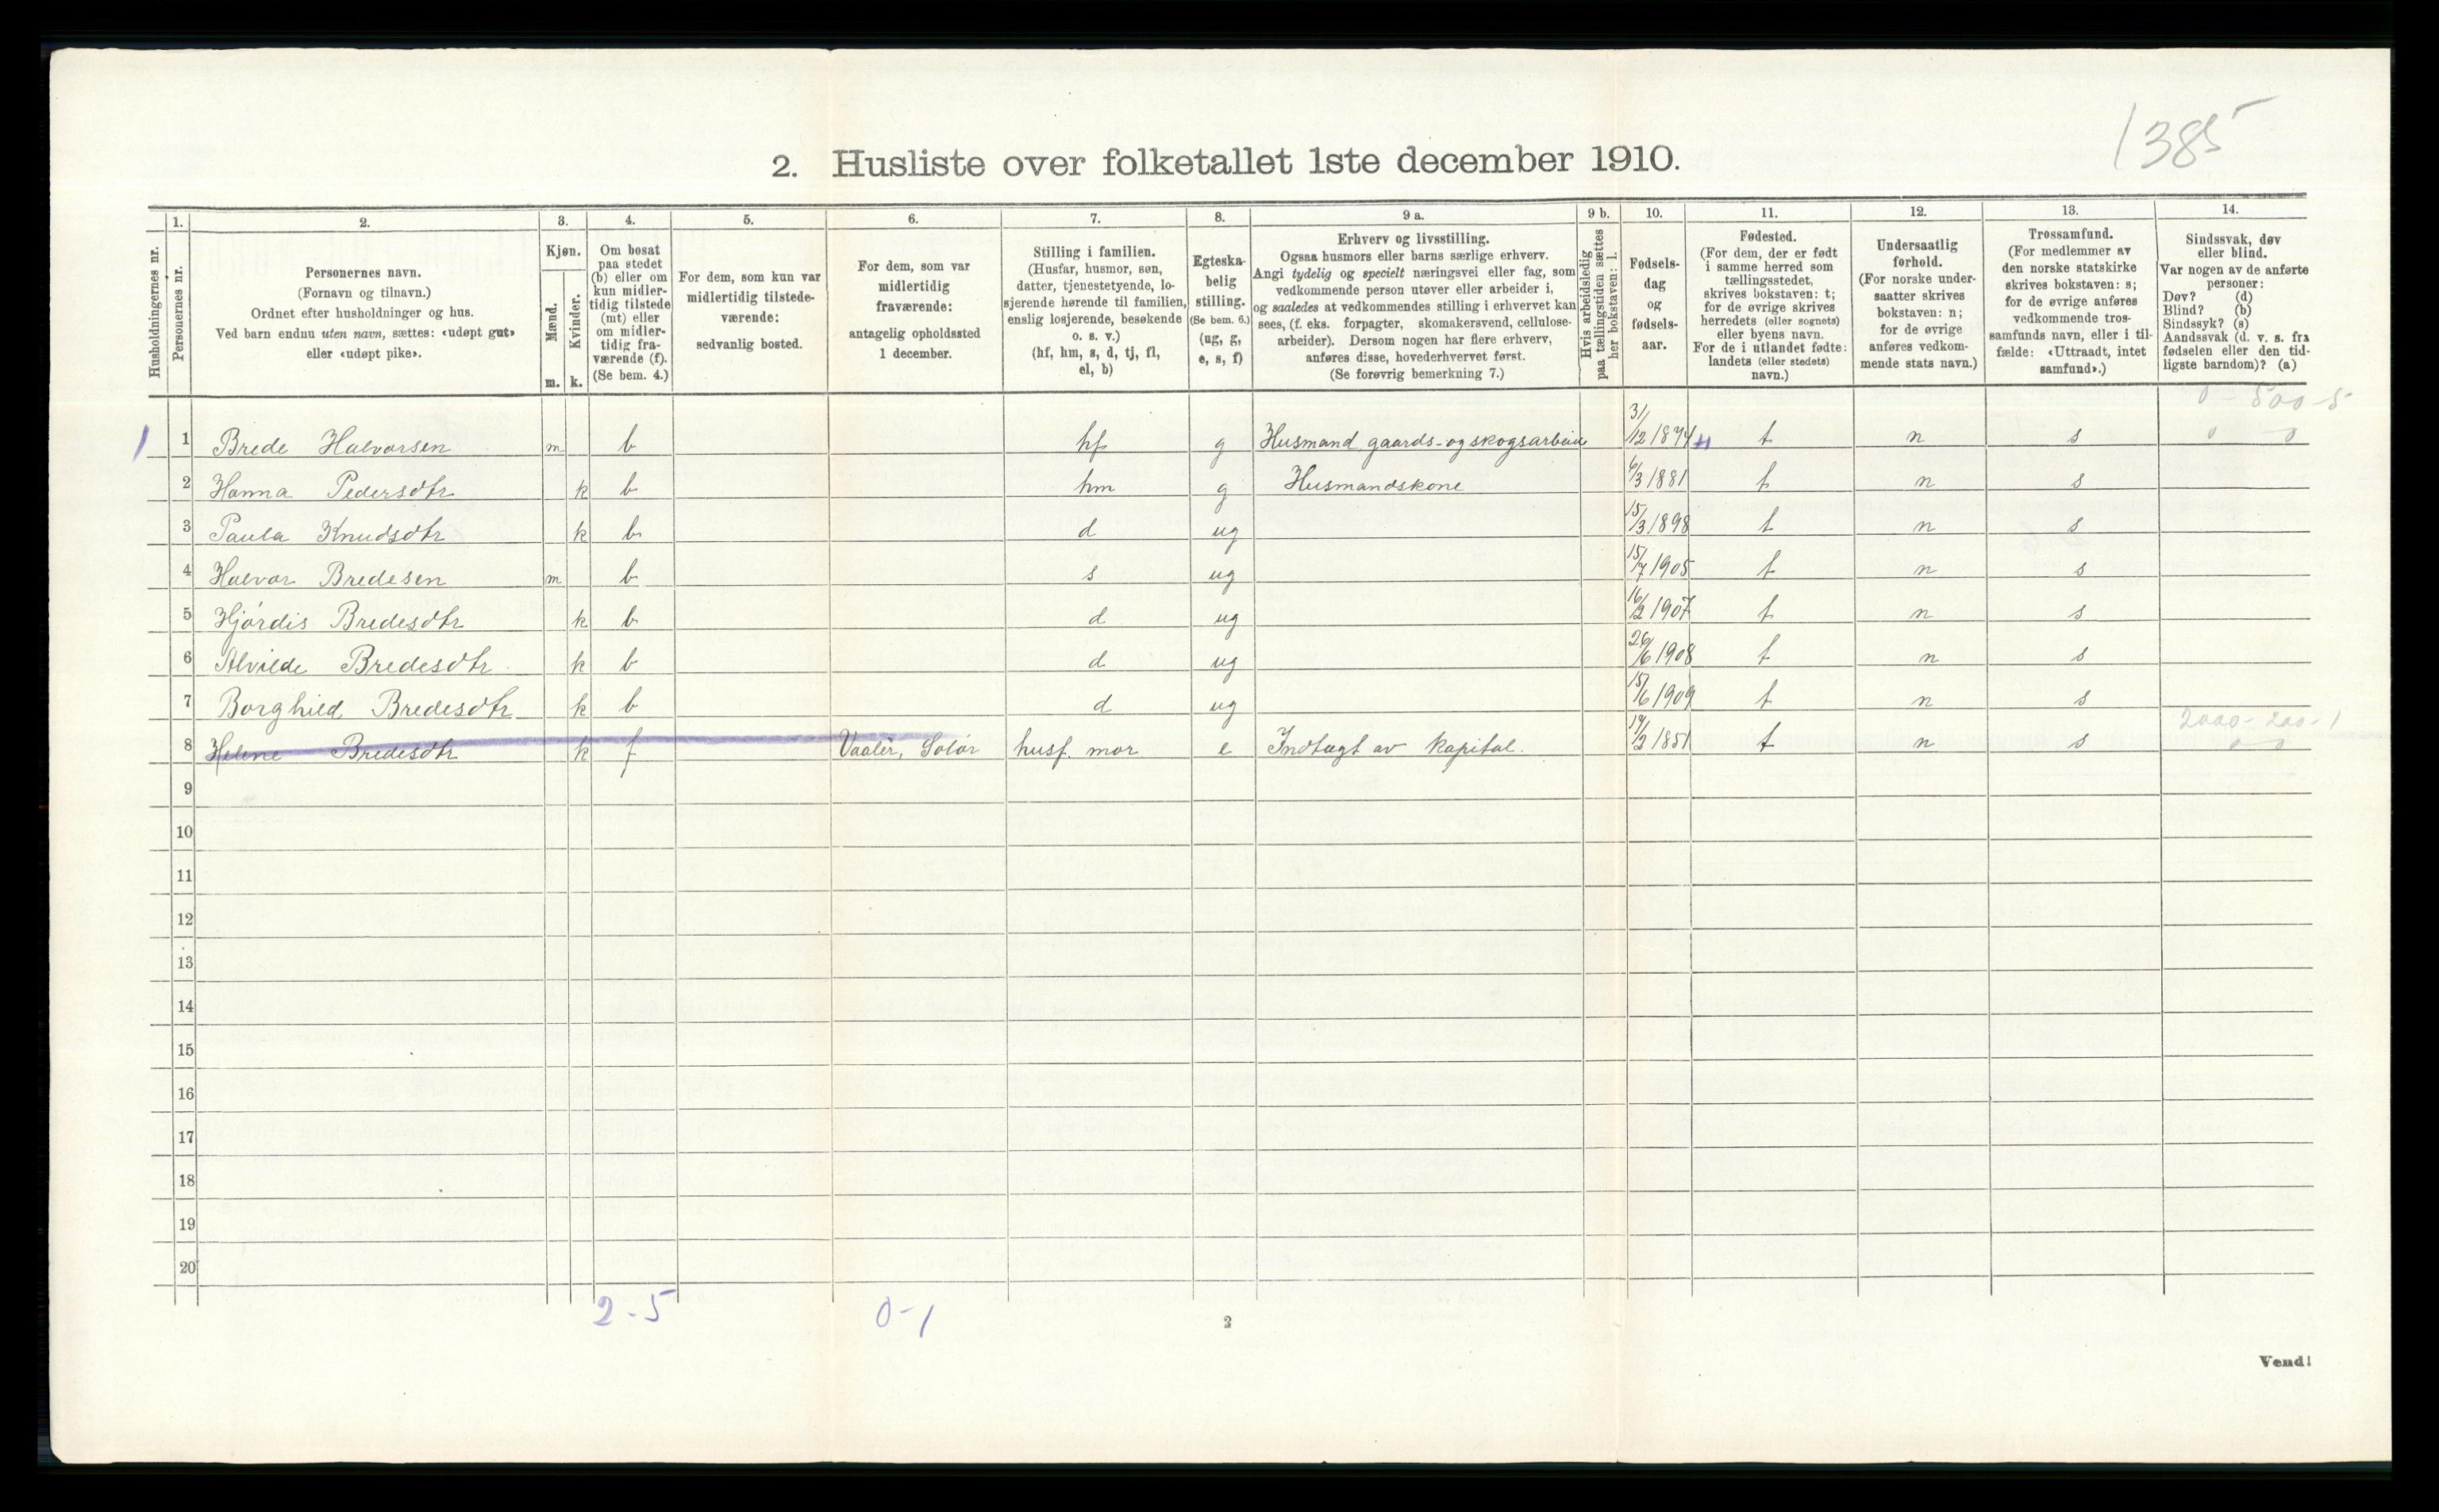 1385
2. Husliste over folketallet 1ste december 1910.
1. 2. 3. 4. 5. 6. 7. 8. 9 a. 9 b. 10. 11. 12. 13. 14.
Husholdningernes nr.
Personernes nr.
Personernes navn.
(Fornavn og tilnavn.)
Ordnet efter husholdninger og hus.
Ved barn endnu uten navn, sættes: «udøpt gut»
eller «udøpt pike».
Kjøn.
Mænd.
Kvinder.
m. k.
Om bosat
paa stedet
(b) eller om
kun midler-
tidig tilstede
(mt) eller
om midler-
tidig fra-
værende (f).
(Se bem. 4.)
For dem, som kun var
midlertidig tilstede-
værende:
sedvanlig bosted.
For dem, som var
midlertidig
fraværende:
antagelig opholdssted
1 december.
Stilling i familien.
(Husfar, husmor, søn,
datter, tjenestetyende, lo-
sjerende hørende til familien,
enslig losjerende, besøkende
o. s. v.)
(hf, hm, s, d, tj, fl,
el, b)
Egteska-
belig
stilling.
(Se bem. 6.)
(ug, g,
e, s, f)
Erhverv og livsstilling.
Ogsaa husmors eller barns særlige erhverv.
Angi tydelig og specielt næringsvei eller fag, som
vedkommende person utøver eller arbeider i,
og saaledes at vedkommendes stilling i erhvervet kan
sees, (f. eks. forpagter, skomakersvend, cellulose-
arbeider). Dersom nogen har flere erhverv,
anføres disse, hovederhvervet først.
(Se forøvrig bemerkning 7.)
Hvis arbeidsledig
paa tællingstiden sættes
her bokstaven: l.
Fødsels-
dag
og
fødsels-
aar.
Fødested.
(For dem, der er født
i samme herred som
tællingsstedet,
skrives bokstaven: t;
for de øvrige skrives
herredets (eller sognets)
eller byens navn.
For de i utlandet fødte:
landets (eller stedets)
navn.)
Undersaatlig
forhold.
(For norske under-
saatter skrives
bokstaven: n;
for de øvrige
anføres vedkom-
mende stats navn.)
Trossamfund.
(For medlemmer av
den norske statskirke
skrives bokstaven: s;
for de øvrige anføres
vedkommende tros-
samfunds navn, eller i til-
fælde: «Uttraadt, intet
samfund».)
Sindssvak, døv
eller blind.
Var nogen av de anførte
personer:
Døv? (d)
Blind? (b)
Sindssyk? (s)
Aandssvak (d. v. s. fra
fødselen eller den tid-
ligste barndom)? (a)
0 - 500 - 5
1 1 Brede Halvorsen m b hf g Husmand, gaards- og skogsarbeide 31/12 1874 t n s 0 0
2 Hanna Pedersdtr k b hm g Husmandskone 6/3 1881 t n s
3 Paula Knudsdtr k b d ug 15/3 1898 t n s
4 Halvor Bredesen m b s ug 15/7 1905 t n s
5 Hjørdis Bredesdtr k b d ug 16/2 1907 t n s
6 Alvilde Bredesdtr k b d ug 26/6 1908 t n s
7 Borghild Bredesdtr k b d ug 15/6 1909 t n s
2000 - 200 - 1
8 Helene Bredesdtr k f Vaaler, Solør husf. mor e Indtægt av kapital. 1851 t n s 0 0
9
10
11
12
13
14
15
16
17
18
19
20
2 - 5 0 - 1
2
Vend!